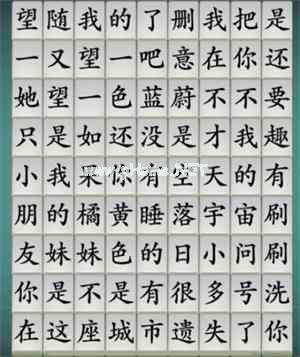 望随我的了删我把是
一又望一吧意在你还
她望一色蓝蔚不不要
只是如还没是才我趣
小我果你有空天的有
朋的橘黄睡落宇宙刷
友妹妹色的日小问刷
你是不是有很多号洗
在这座城市遗失了你